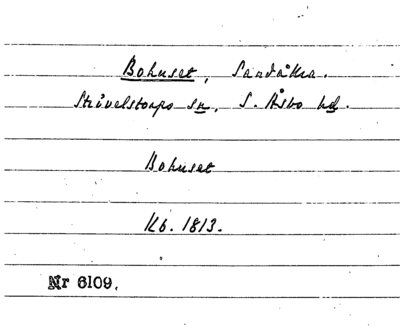 Bohuset, Sandåkra.
Strövelstorps sn, S. Åsbo hd.
Bohuset
Kb. 1813.
Nr 6109.